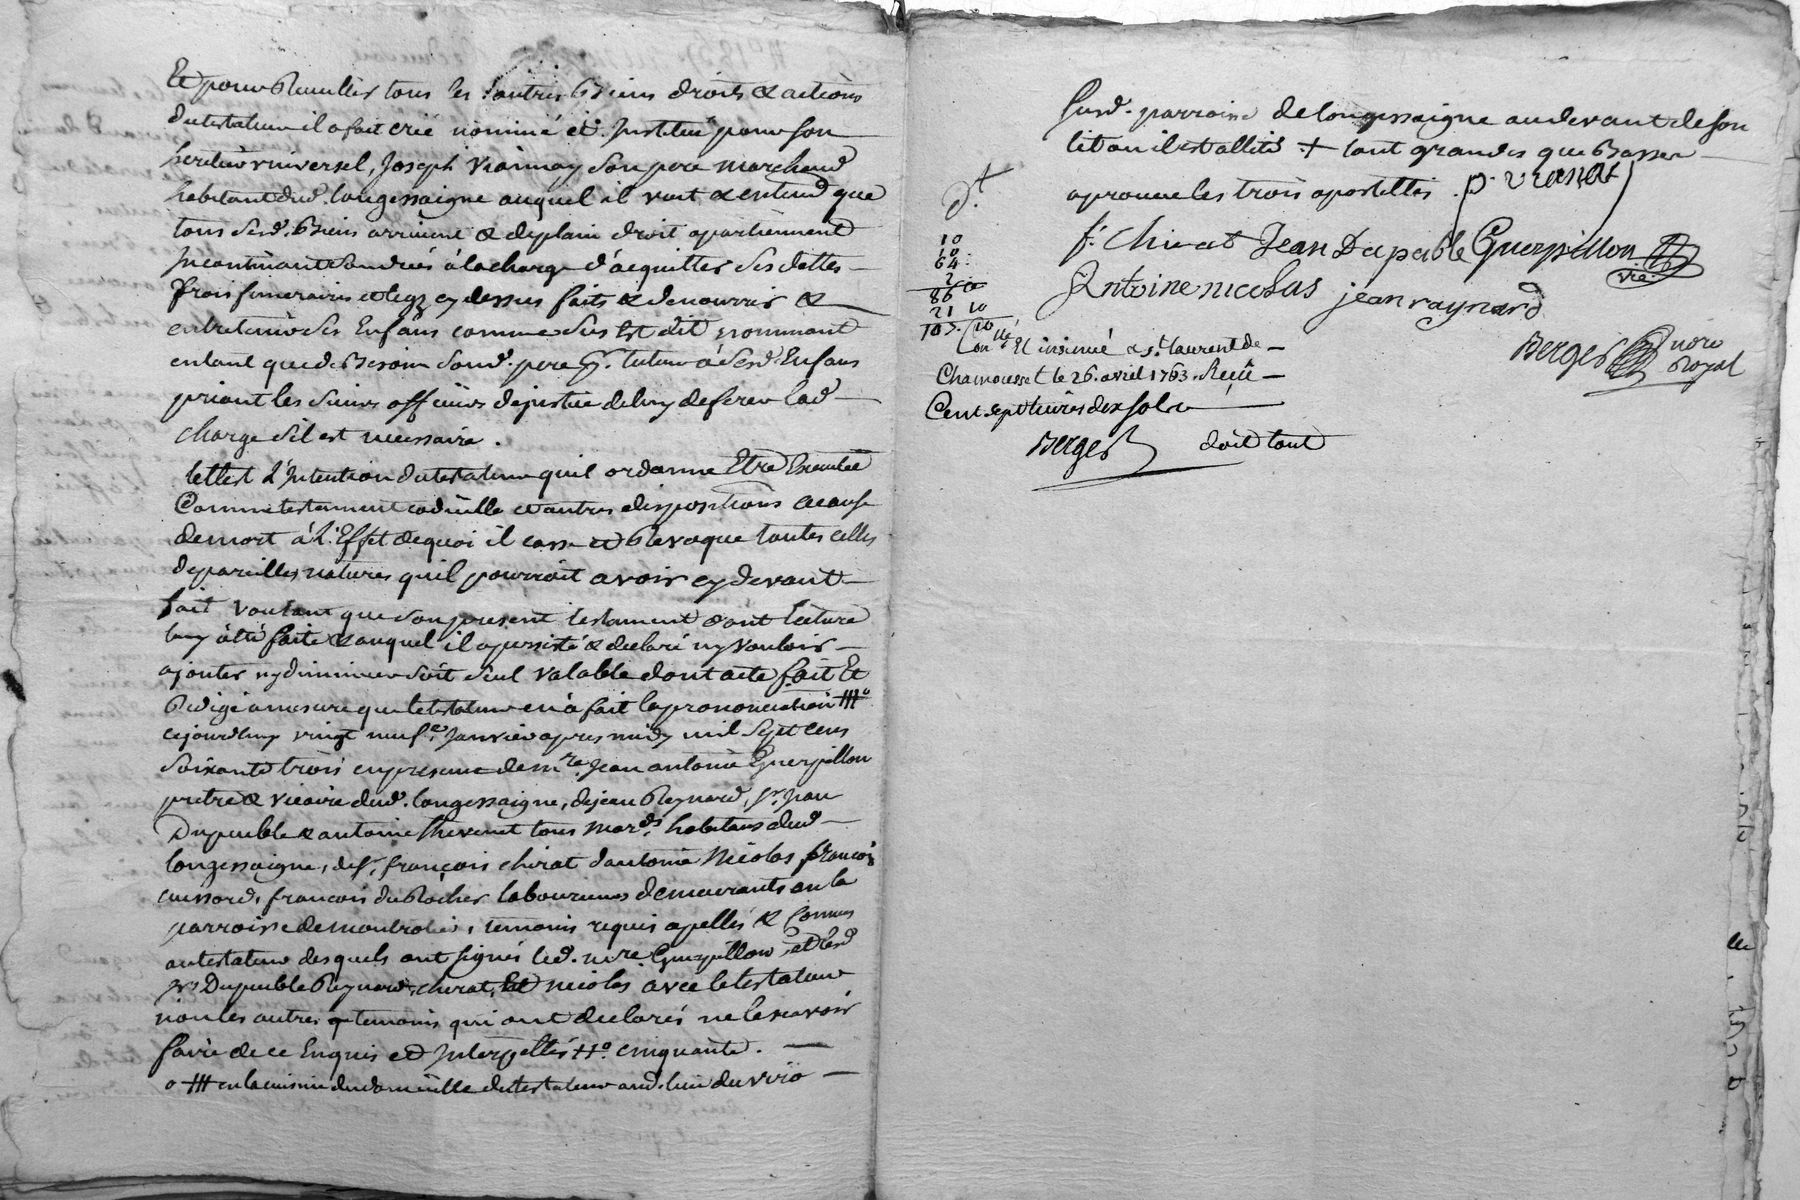 Et pour & en tous les autres Biens droits & actions
du testateur il a fait créé nommé et Institué pour son
heritier universel, Joseph Viannay son pere marchand
habitant dud. longessaigne auquel il veut & entend que
tous sesd. Biens arrivent & de plain droit apartiennent
Incontinant son decés à la charge d'acquitter ses dettes
frais funeraires et legz cy dessus faits & de nourrir &
entretenir ses Enfans comme dus Est dit nommant
entant que de Besoin sond. pere pr. tuteur à sesd. Enfans
priant les sieurs officiers de justice de luy deferer lad
charge s'il est necessaire.
telle est l'Intention du testateur quil ordonne Etre Executée
Comme testament codicille et autres dispositions a cause
de mort à l'Effet de quoi il casse et Revoque toutes celles
de pareilles natures quil pourroit avoir cy devant
fait voulant que son present testament dont lecture
luy à été faite & auquel il a persisté & declaré ny vouloir
ajouter ny diminuer soit seul valable dont acte fait Et
Redigé a mesure que le testateur en à fait la prononciation #°
cejourdhuy vingt neufe. Janvier apres midy mil sept cens
soixante trois en presence de mre. Jean antoine Guerpillon
pretre & vicaire dud. longessaigne, de jean Reynard, sr. Jean
Dupeuble & antoine thevenet tous mards. habitans dud
longessaigne, de sr. françois chirat d'antoine Nicolas françois
cussord, francois du Rocher laboureurs demeurants en la
parroisse de montrotier, temoins requis apellés & Connus
au testateur desquels ont signés led. mre. Guerpillon, et lesd
srs Dupeuble Reynard, chirat, et nicolas avec le testateur
non les autres temoins qui ont declarés ne le scavoir
faire de ce Enquis et Interpellés #°. cinquante.
° # en la cuisine du domicille du testateur aud. lieu du
susd. parroisse de longessaigne au devant de son
lit ou il est allité + tant grandes que Basses
aprouve les trois apostilles. p. vianay
f. Chirat Jean Dupeuble Guerpillon
vic
Antoine nicolas jean raynard
Berger nore
Royal
d.t
10
10
64
2
86
21 10
107. 10
Conllé Et insinué a st. laurent de
Chamousset le 26. avril 1763. Reçu
Cent sept livres dix sols
Berger doit tout